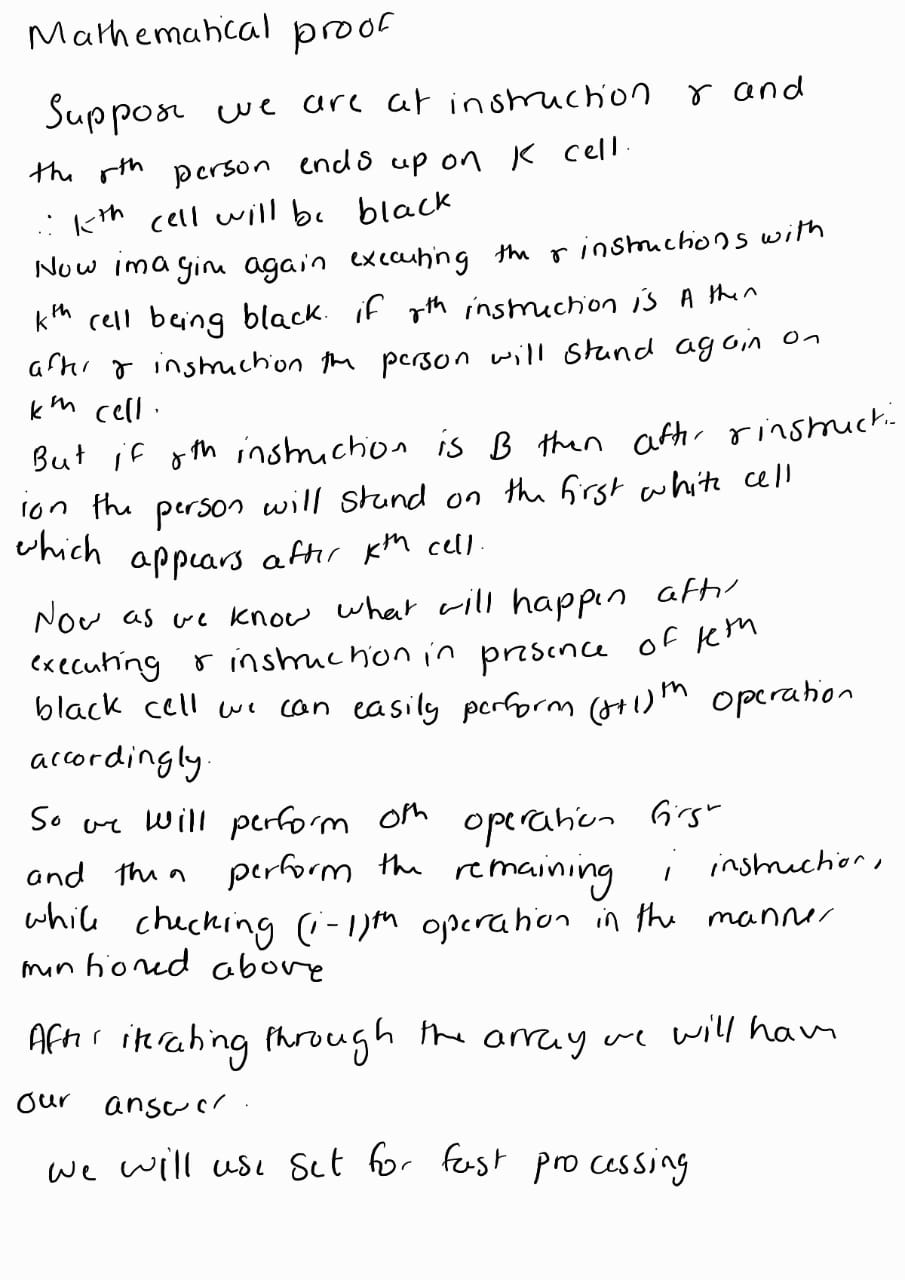 Mathematical proof
Suppose we are at instruction r and
the rth person ends up on K cell.
∴ kth cell will be black
Now imagine again executing the r instructions with
kth cell being black. if rth instruction is A then
after r instruction the person will stand again on
kth cell.
But if rth instruction is B then after r instruct-
ion the person will stand on the first white cell
which appears after kth cell.
Now as we know what will happen after
executing r instruction in presence of kth
black cell we can easily perform (r+1)th operation
accordingly.
So we will perform 0th operation first
and then perform the remaining i instruction,
while checking (i-1)th operation in the manner
mentioned above
After iterating through the array we will have
our answer.
we will use set for fast processing